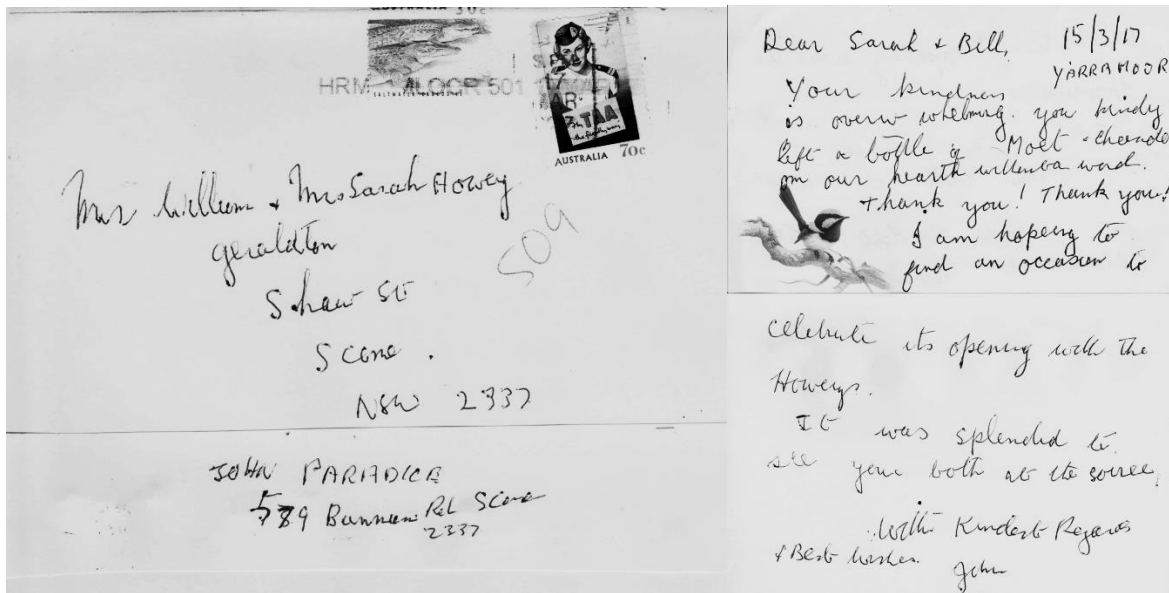 AUSTRALIA 30c
SALTWATER CROCODILE
HRM MLOCR 501
MAR
Fly TAA
the friendly way
AUSTRALIA 70c
Mr William & Mrs Sarah Howey
Geraldton
Shaw St
Scone.
NSW 2337
509
JOHN PARADICE
589 Bunnan Rd Scone
2337
Dear Sarah & Bill, 15/3/17
YARRAMOOR
Your kindness
is overwhelming. you kindly
left a bottle of Moet
on our hearth without a word.
Thank you! Thank you!
I am hopeing to
find an occasion to
celebrate its opening with the
Howeys.
It was splendid to
see you both at the soiree,
With Kindest Regards
& Best Wishes.
John